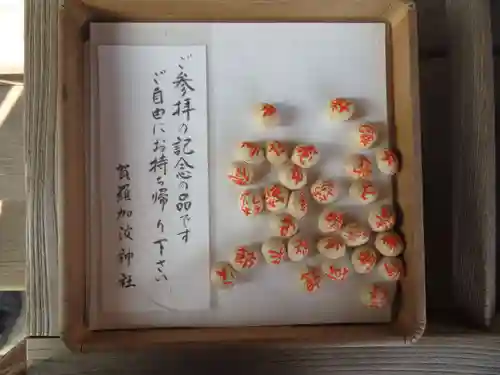 ご参拝の記念の品です
ご自由にお持ち帰り下さい
賀羅加波神社